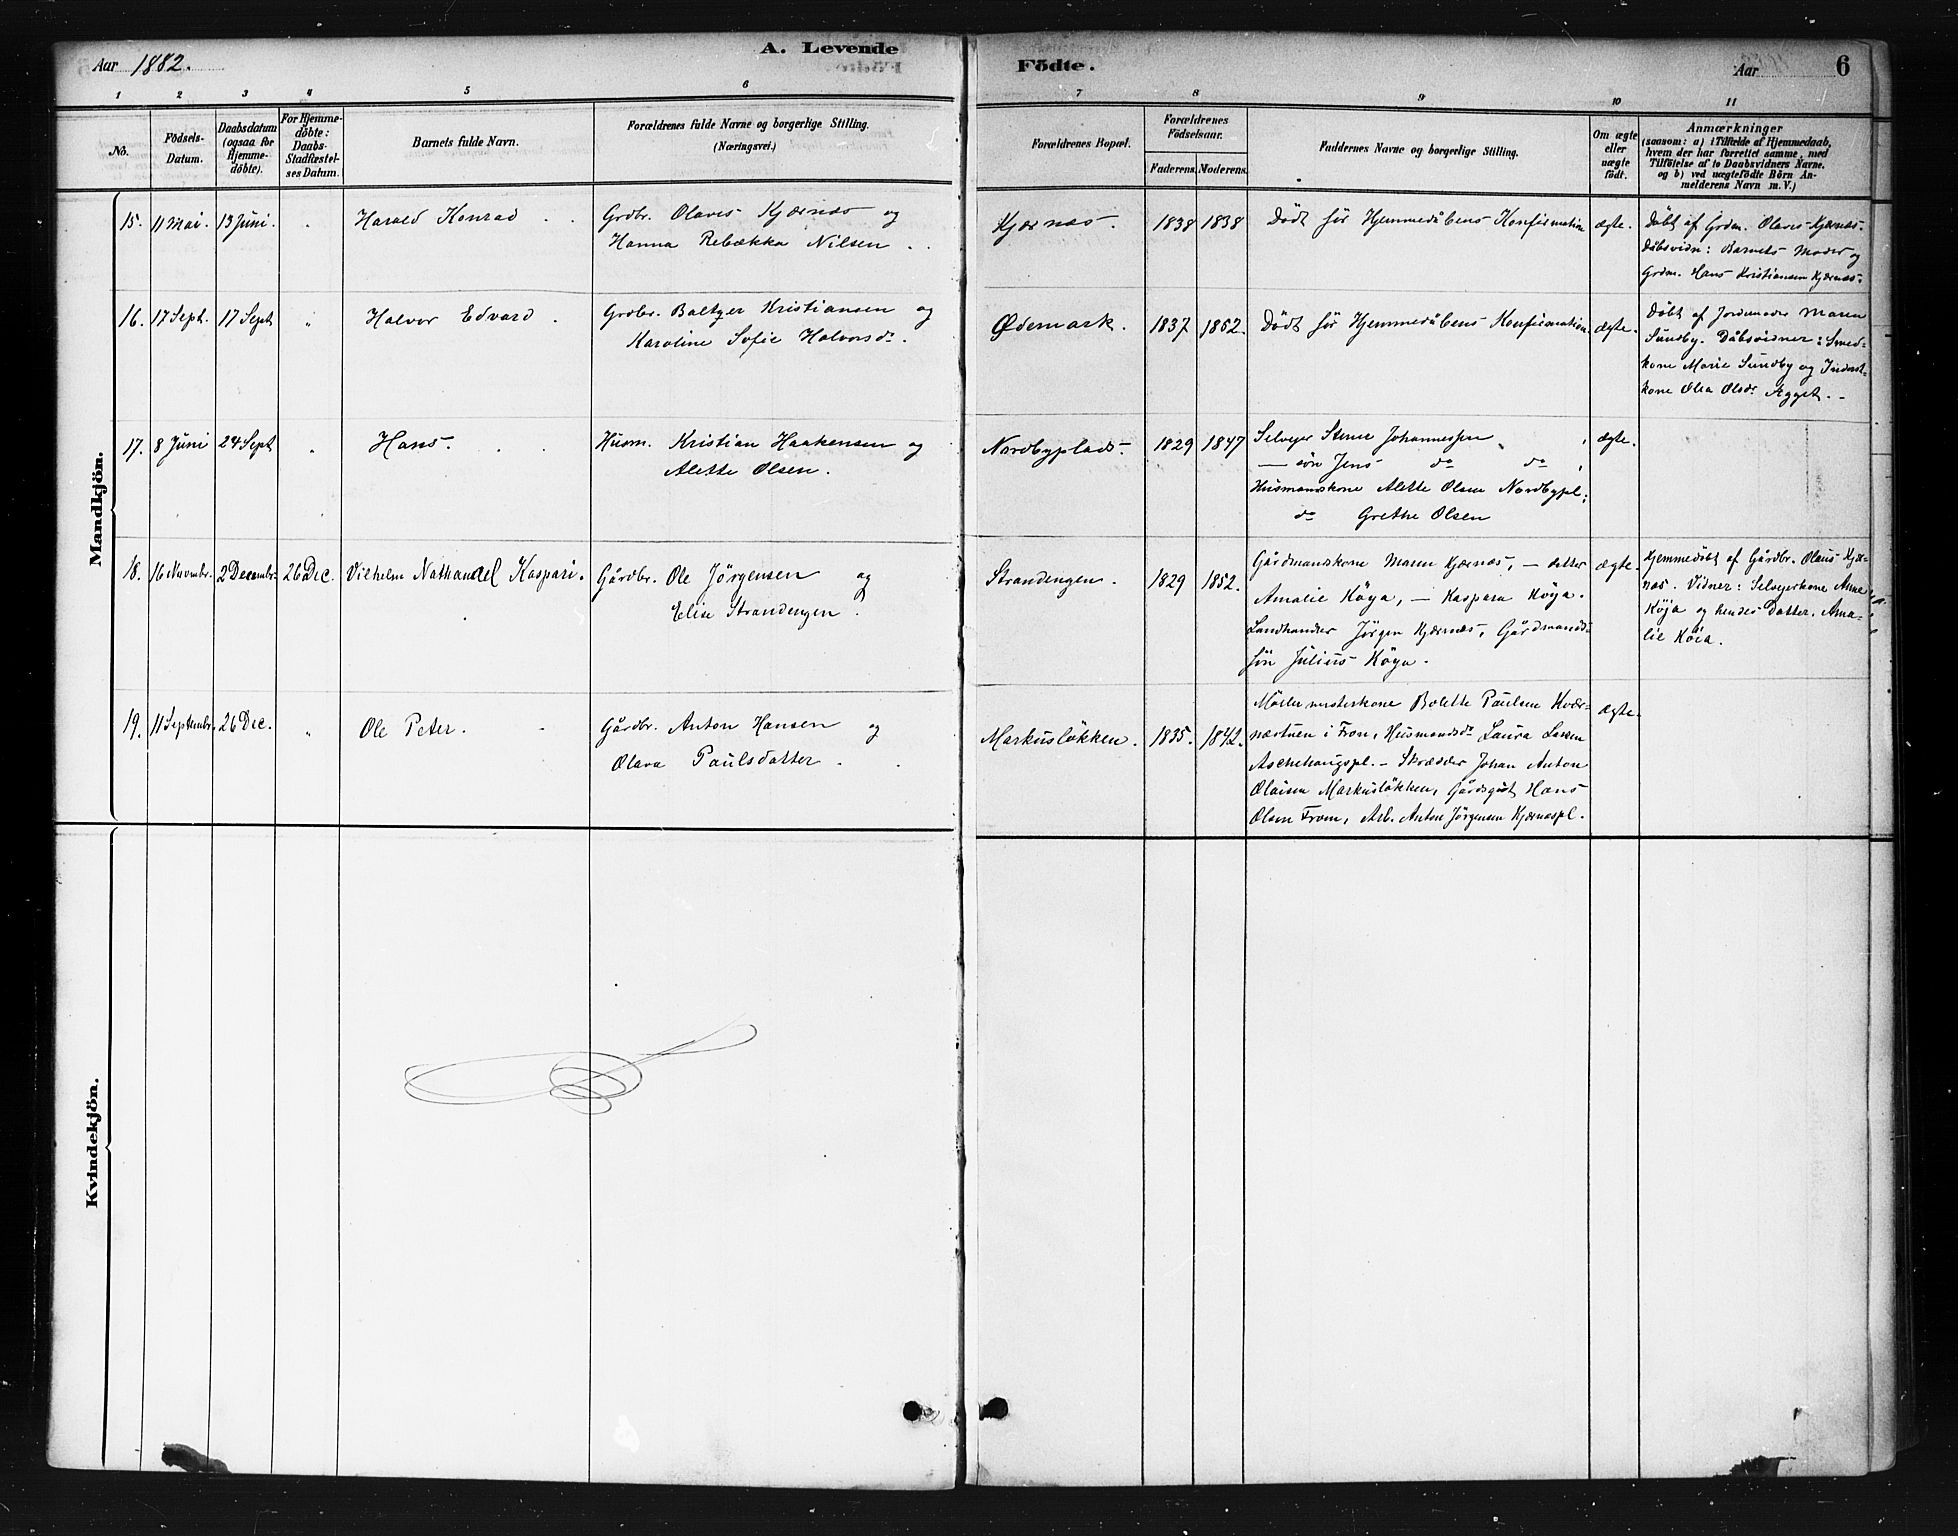 Aar 1882.
A. Levende
Födte.
Aar
6
1 2 3 4 5 6 7 8 9 10 11
No.
Födsels-
Datum.
Daabsdatum
(ogsaa for
Hjemme-
döbte).
For Hjemme-
döbte:
Daabs-
Stadfæstel-
ses Datum.
Barnets fulde Navn.
Forældrenes fulde Navne og borgerlige Stilling.
(Næringsvei.)
Forældrenes Bopæl.
Forældrenes
Födselsaar.
Faderens. Moderens.
Faddernes Navne og borgerlige Stilling.
Om ægte
eller
uægte
födt.
Anmærkninger
(saasom: a) i Tilfælde af Hjemmedaab,
hvem der har forrettet samme, med
Tilföielse af to Daabsvidners Navne.
og b) ved uægtefödte Börn An-
melderens Navn m. V.)
Mandkjön.
15. 11 Mai. 13 Juni. " Harald Konrad
Grdbr. Olaves Kjærnæs og
Hanna Rebækka Nilsen
Kjærnæs. 1838 1838
Dødt før Hjemmedåbens Konfirmation
ægte.
Døbt af Grdm. Olaves Kjærnæs.
Dåbsvidn: Barnets Moder og
Grdm. Hans Kristiansen Kjærnæs.
16. 17 Sept. 17 Sept " Halvor Edvard.
Grdbr. Baltzer Kristiansen og
Karoline Sofie Halvorsdr.
Ødemark. 1837 1852.
Dødt før Hjemmedåbens Konfirmation.
ægte.
Døbt af Jordemoder Maren
Sundby. Dåbsvidner: Smed-
kone Marie Sundby og Inderst-
kone Olea Olsdr. Agget.
17. 8 Juni 24 Sept " Hans.
Husm. Kristian Haakensen og
Alette Olsen.
Nordbyplads. 1829 1847
Selvejer Johannessen
— søn Jens do do
Husmandskone Alette Olsen Nordbypl;
do Grethe Olsen
ægte.
18. 16 Novmbr. 2 Decembr. 26 Dec. Vilhelm Nathanael Kaspari.
Gårdbr. Ole Jörgensen og
Elise Strandengen.
Strandengen. 1829 1852.
Gårdmandskone Maren Kjærnæs, — datter
Amalie Köja, — Kaspara Köja.
Landhandler Jörgen Kjærnæs, Gårdmands-
søn Julius Köja.
ægte.
Hjemmedøbt af Gårdbr. Olaus Kjær-
næs. Vidner: Selvejerkone Anne
Köja og hendes Datter, Ama-
lie Köia.
19. 11 Septembr. 26 Dec. " Ole Peter.
Gårdbr. Anton Hansen og
Olava Paulsdatter.
Markusløkken. 1835. 1842.
Møllemesterkone Bolette Paulsen Kvær-
nærtuen i Fron, Husmandsd. Laura Larsen
Aschehougspl. – Skrædder Johan Anton
Olaisen Markusløkken, Gårdsgut Hans
Olsen Fron, Arb. Anton Jörgensen Kjærnæspl.
ægte.
Kvindekjön.